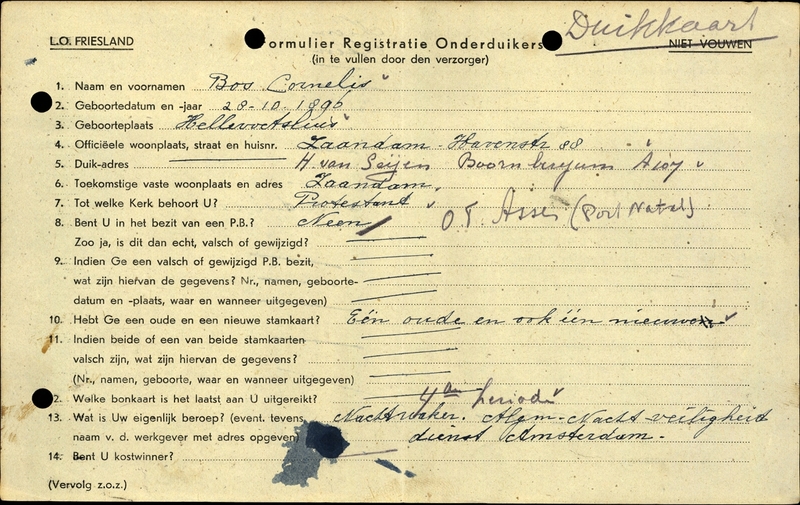 Duikkaart
L.O. FRIESLAND
Formulier Registratie Onderduikers
NIET VOUWEN
(in te vullen door den verzorger)
1. Naam en voornamen Bos Cornelis
2. Geboortedatum en -jaar 28-10-1896
3. Geboorteplaats Hellevoetsluis
4. Officiëele woonplaats, straat en huisnr. Zaandam - Havenstr 88
5. Duik-adres H. van Seijen Boornbergum A107
6. Toekomstige vaste woonplaats en adres Zaandam.
7. Tot welke Kerk behoort U? Protestant
8. Bent U in het bezit van een P.B.? Neen OT Assen (Port Natal)
Zoo ja, is dit dan echt, valsch of gewijzigd?
9. Indien Ge een valsch of gewijzigd P.B. bezit,
wat zijn hiervan de gegevens? Nr., namen, geboorte-
datum en -plaats, waar en wanneer uitgegeven)
10. Hebt Ge een oude en een nieuwe stamkaart? Eén oude en ook één nieuwe
11. Indien beide of een van beide stamkaarten
valsch zijn, wat zijn hiervan de gegevens?
(Nr., namen, geboorte, waar en wanneer uitgegeven)
2. Welke bonkaart is het laatst aan U uitgereikt? 4de periode
13. Wat is Uw eigenlijk beroep? (event. tevens Nachtwaker. Algem. Nacht-veiligheid
naam v. d. werkgever met adres opgeven) dienst Amsterdam.
14. Bent U kostwinner?
(Vervolg z.o.z.)